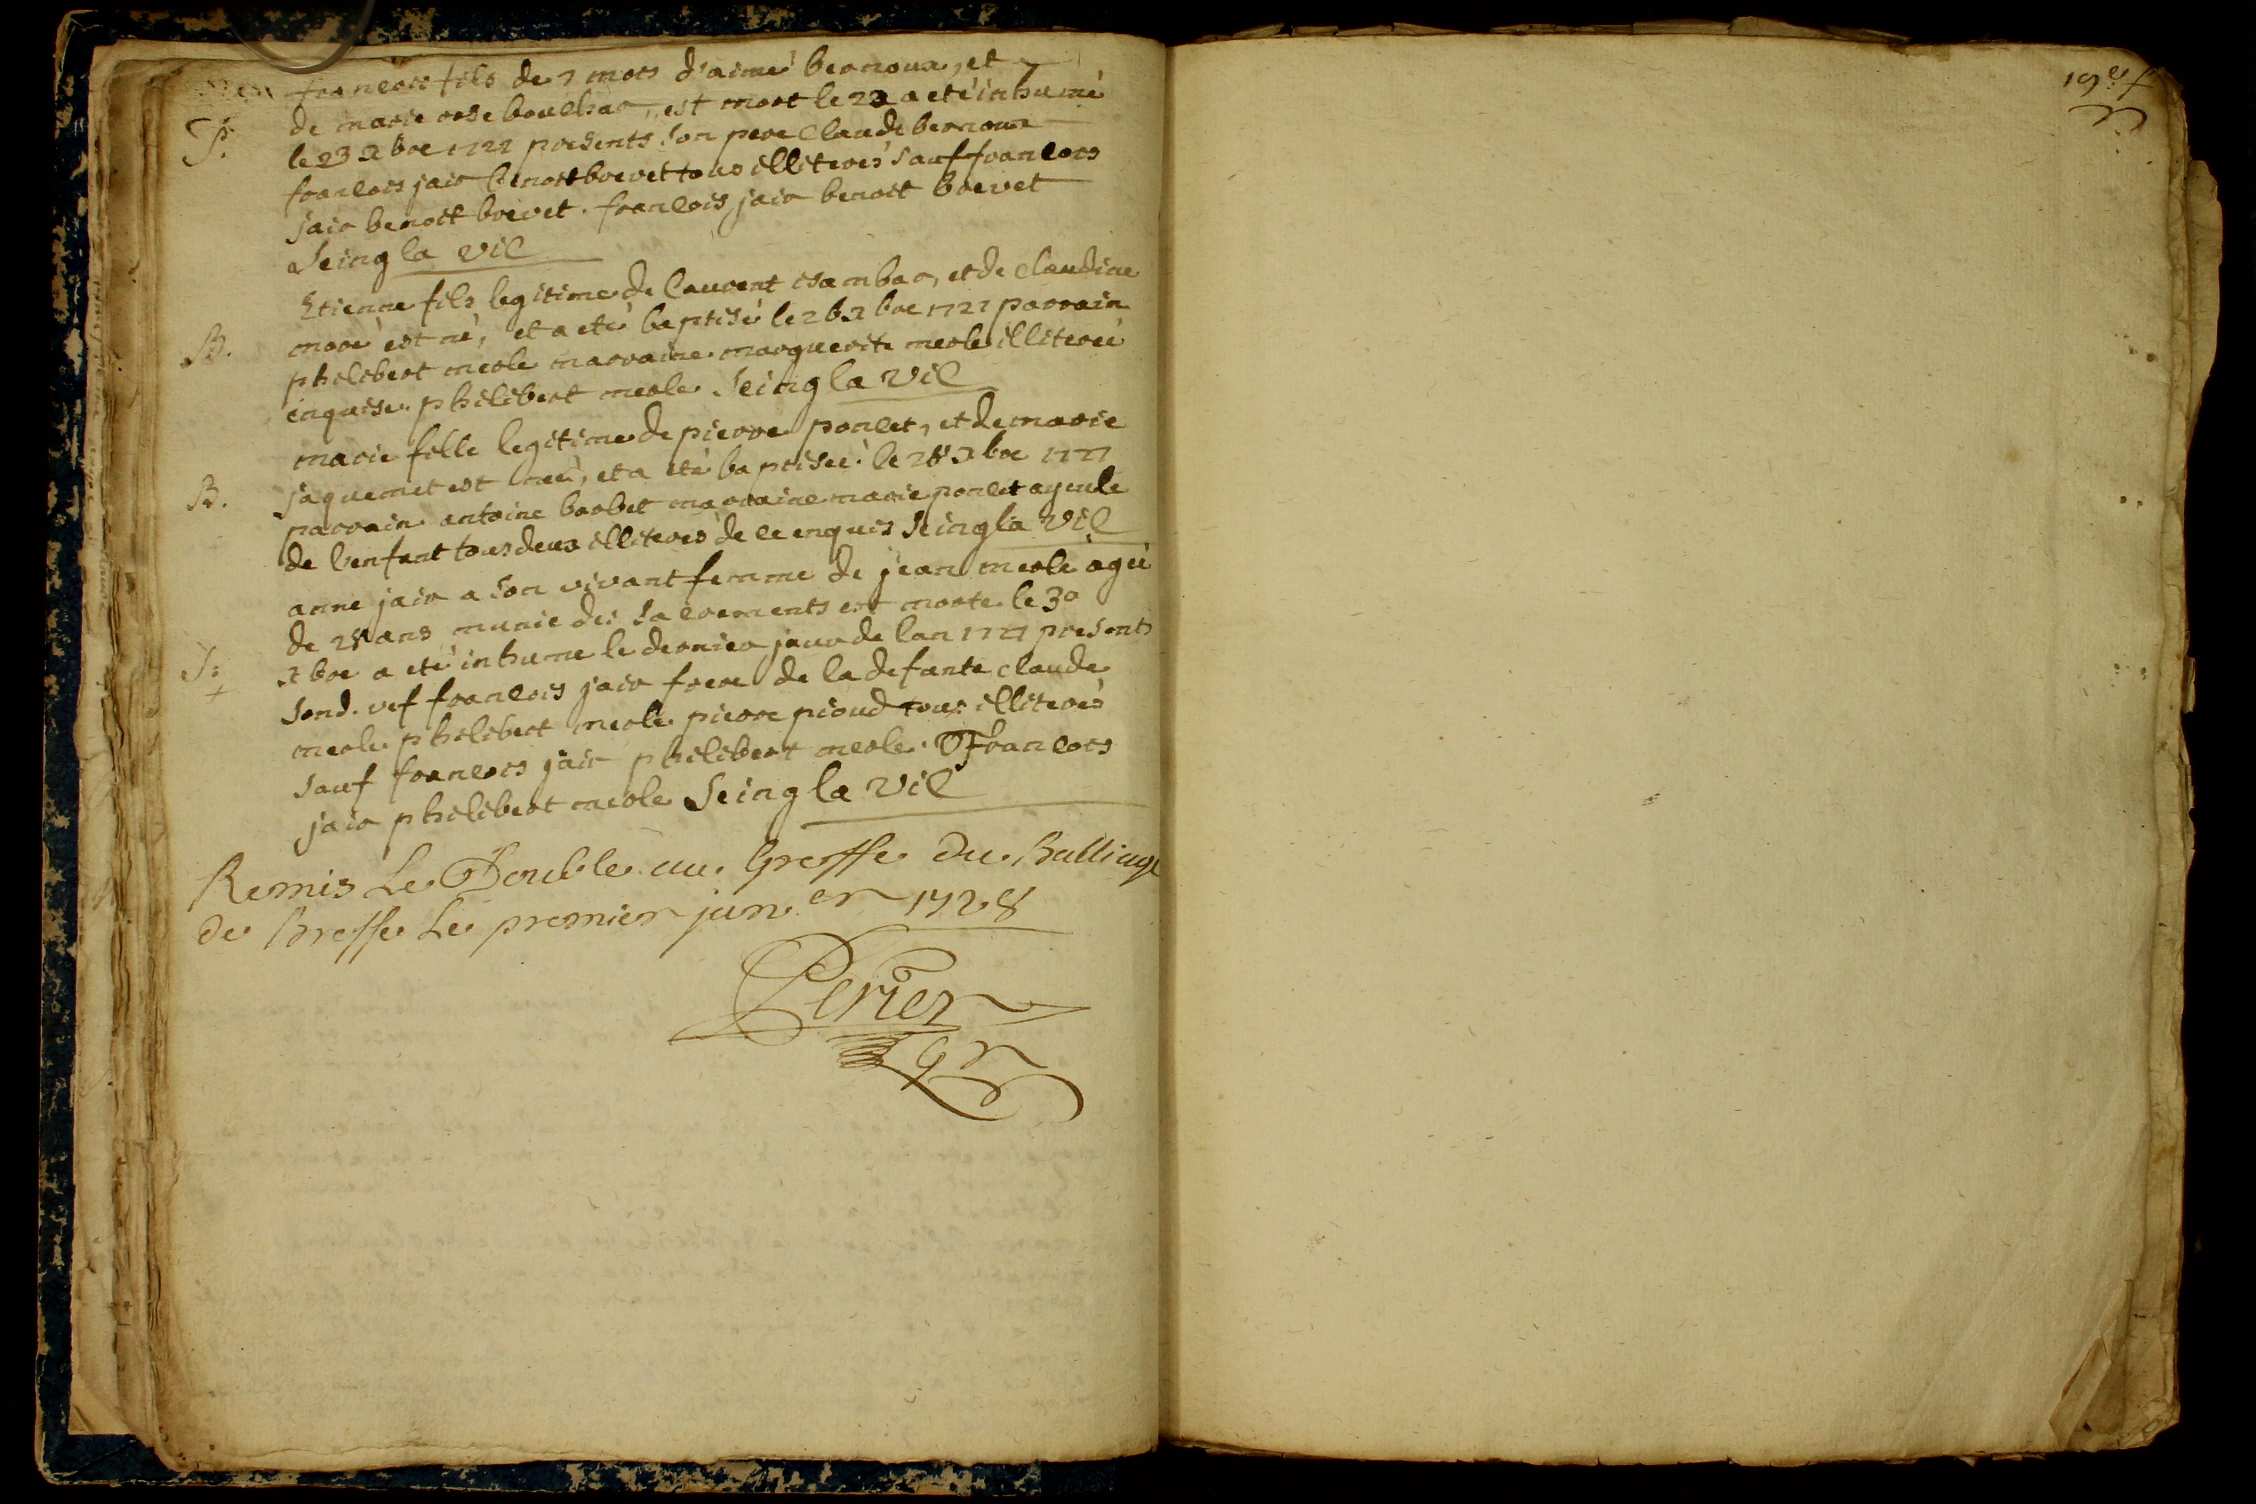 francois fils de 7 mois d'aimé bernoux, et
de marie rose bouchar, est mort le 22 a eté inhumé
S. le 23 xbre 1727 presents son pere claude bernoux
francois jair benoit brevet tous illiterés sauf francois
jair benoit brevet. francois jair benoit brevet
Seing la vil
Etienne fils legitime de laurent isambar, et de claudine
B. more est né, et a eté baptisé le 26 xbre 1727 parrain
philibert merle marraine marguerite merle illiterée
enquise. philibert merle Seing la Vil
marie fille legitime de pierre poncet, et de marie
B. jaquemet est née, et a eté baptisée le 28 xbre 1727
parrain antoine barbet marraine marie poncet ayeule
de l'enfant tous deux illiterés de ce enquis Seing la Vil
anne jair a son vivant femme de jean merle agée
de ans munie des sacrements est morte le 30
S: xbre a eté inhume le dernier jour de lan 1727 presents
sond. vef francois jair frere de la defunte claude
merle philibert merle pierre pioud tous illiterés
sauf francois jair philibert merle. Francois
jair philibert merle Seing la Vil
Remis Le Double au Greffe du Balliage
de Bresse Le premier janer 1728
Perier
Gr
19e f